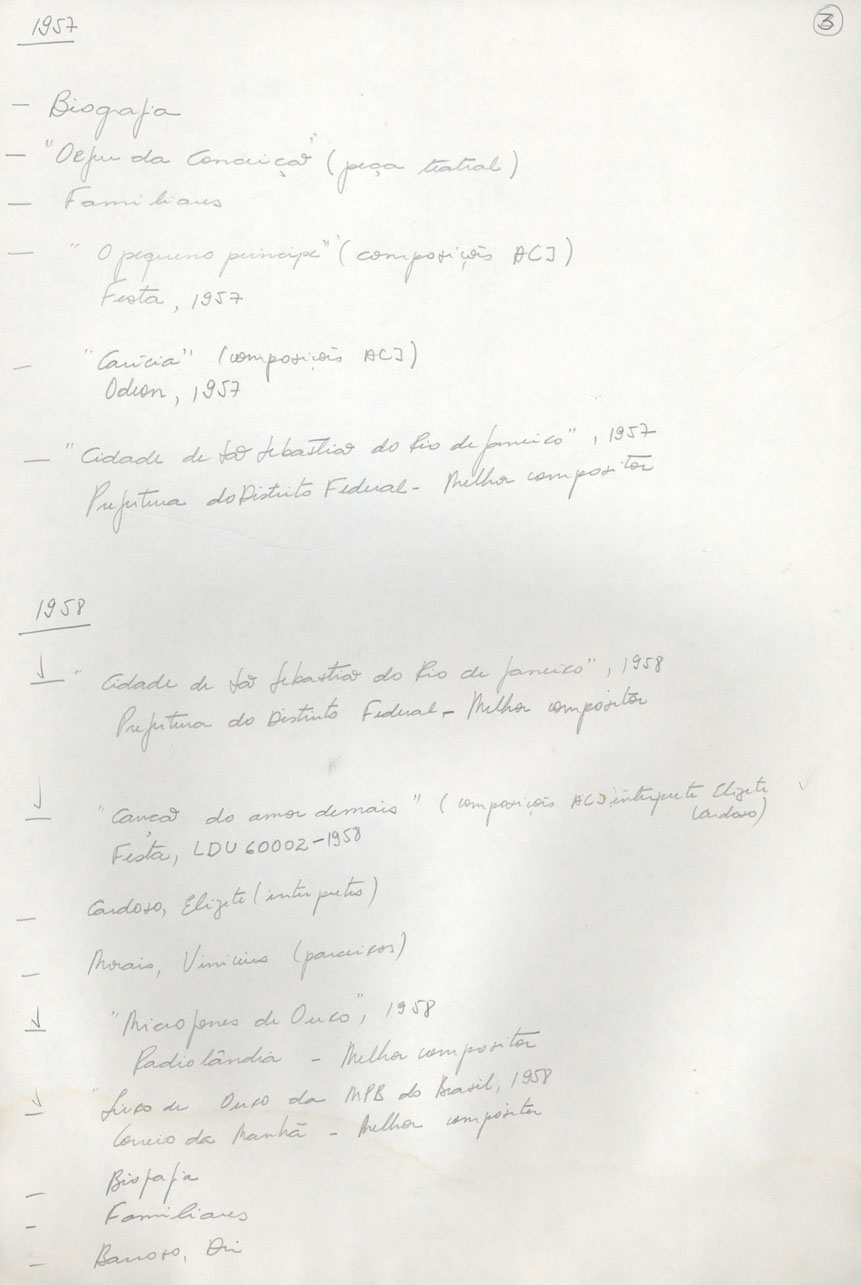 1957
3
- Biografia
- "Orfeu da Conceição" (peça teatral)
- Familiares
- "O pequeno príncipe" (composições ACJ)
Festa, 1957
- "Carícia" (composições ACJ)
Odeon, 1957
- "Cidade de São Sebastião do Rio de Janeiro", 1957
Prefeitura do Distrito Federal - Melhor compositor
1958
"Cidade de São Sebastião do Rio de Janeiro", 1958
Prefeitura do Distrito Federal - Melhor compositor
"Canção do amor demais" (composições ACJ interprete Elizete
Cardoso)
Festa, LDU 60002-1958
- Cardoso, Elizete (interpretes)
- Morais, Vinicius (parceiros)
"Microfones de Ouro", 1958
Radiolândia - Melhor compositor
"Livro de Ouro da MPB do Brasil, 1958
Correio da Manhã - Melhor compositor
- Biografia
- Familiares
- Barroso, Ari